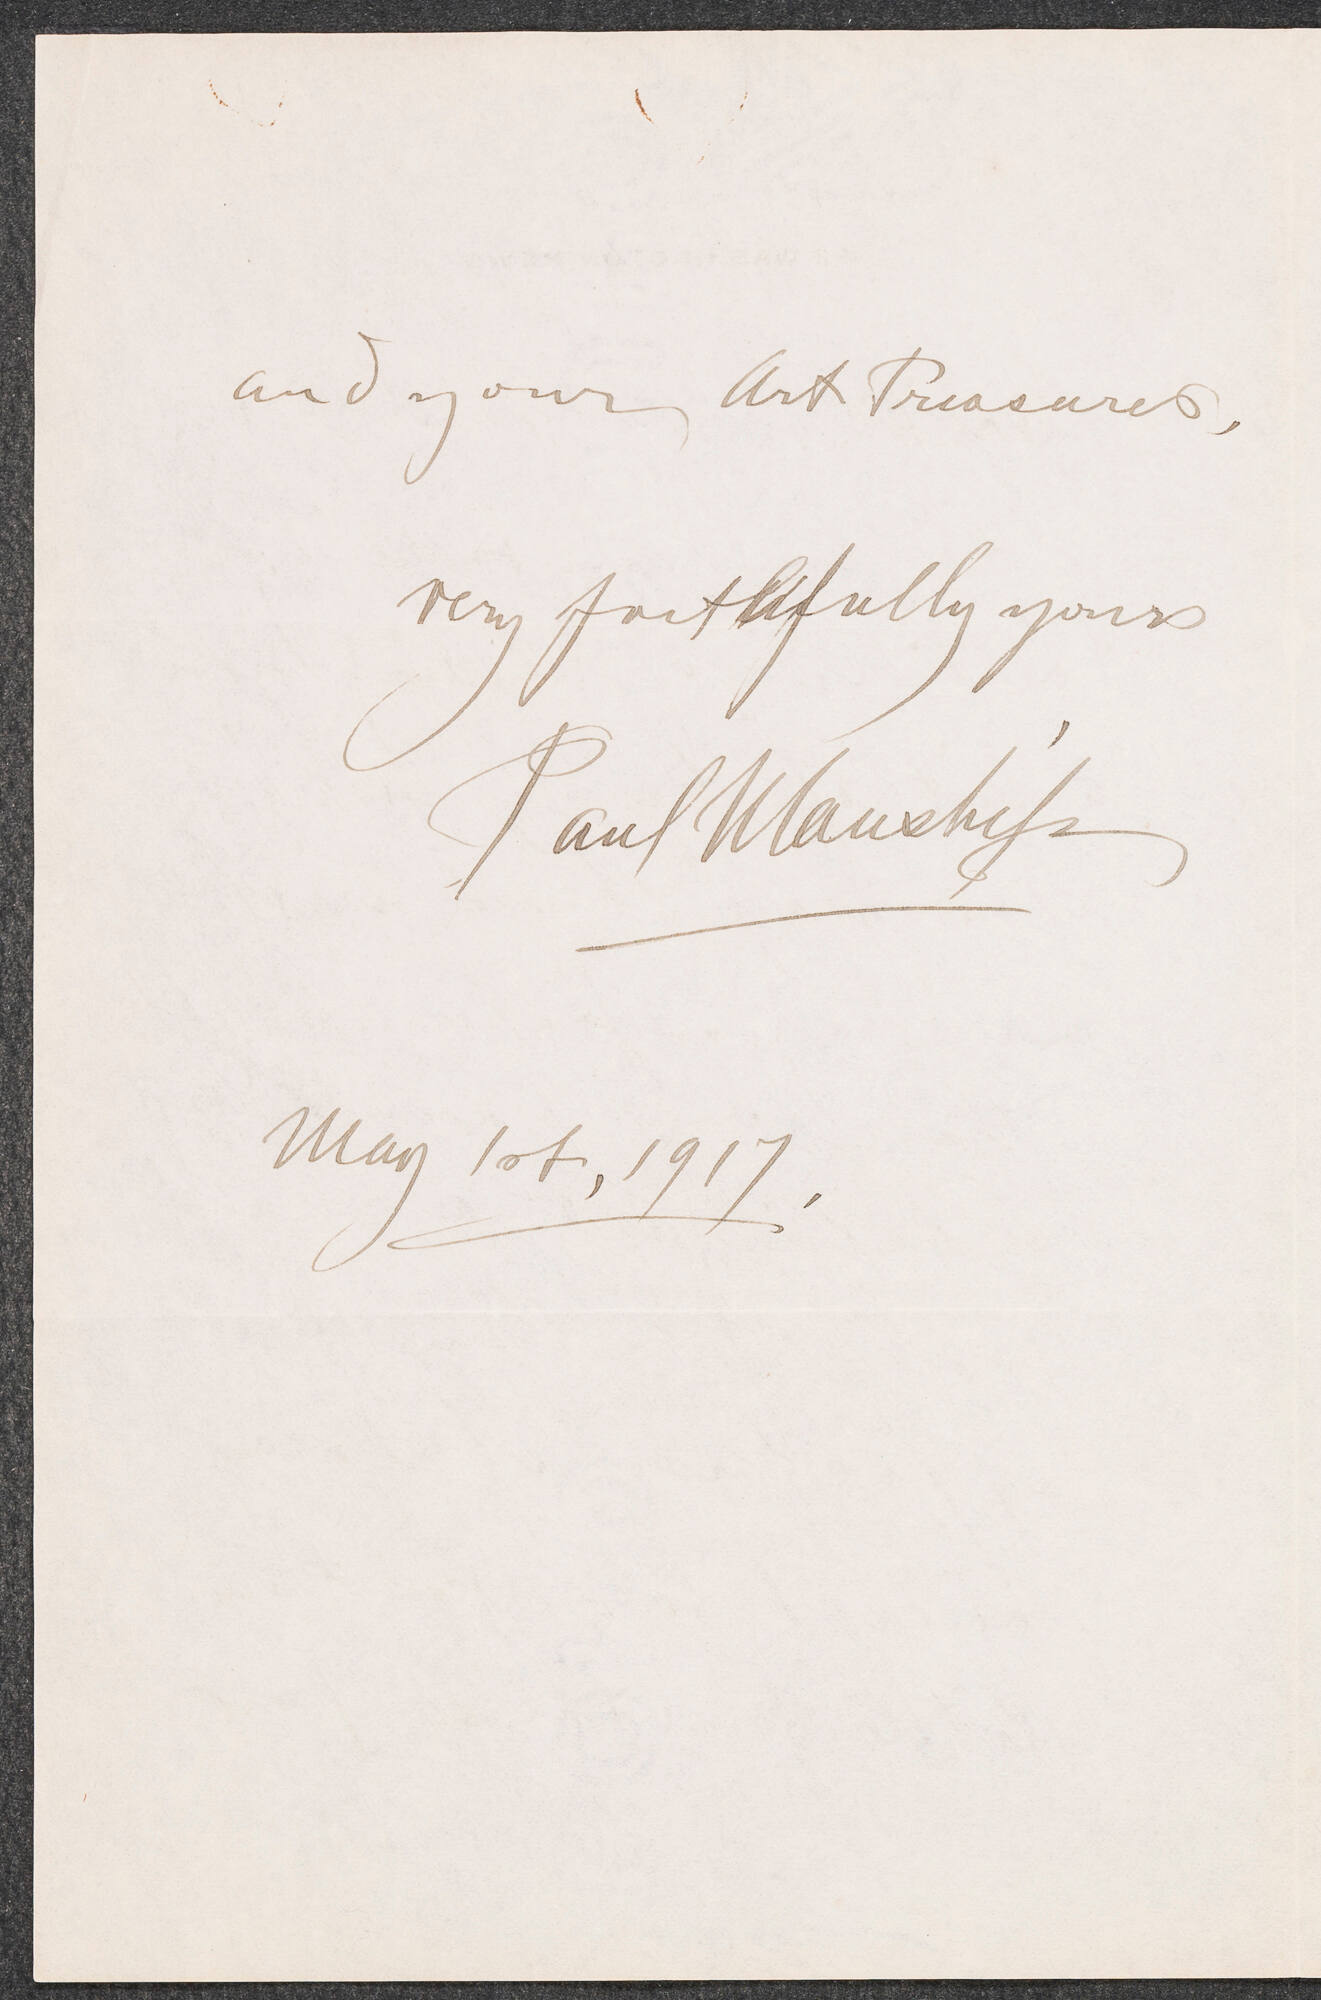 and your Art Treasures,
very faithfully yours
Paul Manship
May 1st, 1917.